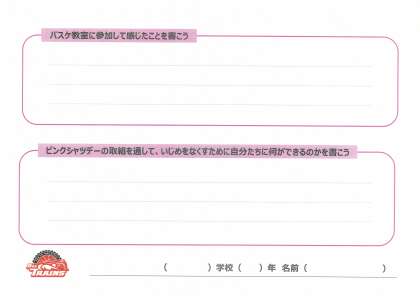 バスケ教室に参加して感じたことを書こう
ピンクシャツデーの取組を通して、いじめをなくすために自分たちに何ができるのかを書こう
（　　　）学校（　　）年 名前（　　　　　　　）
TRAINS